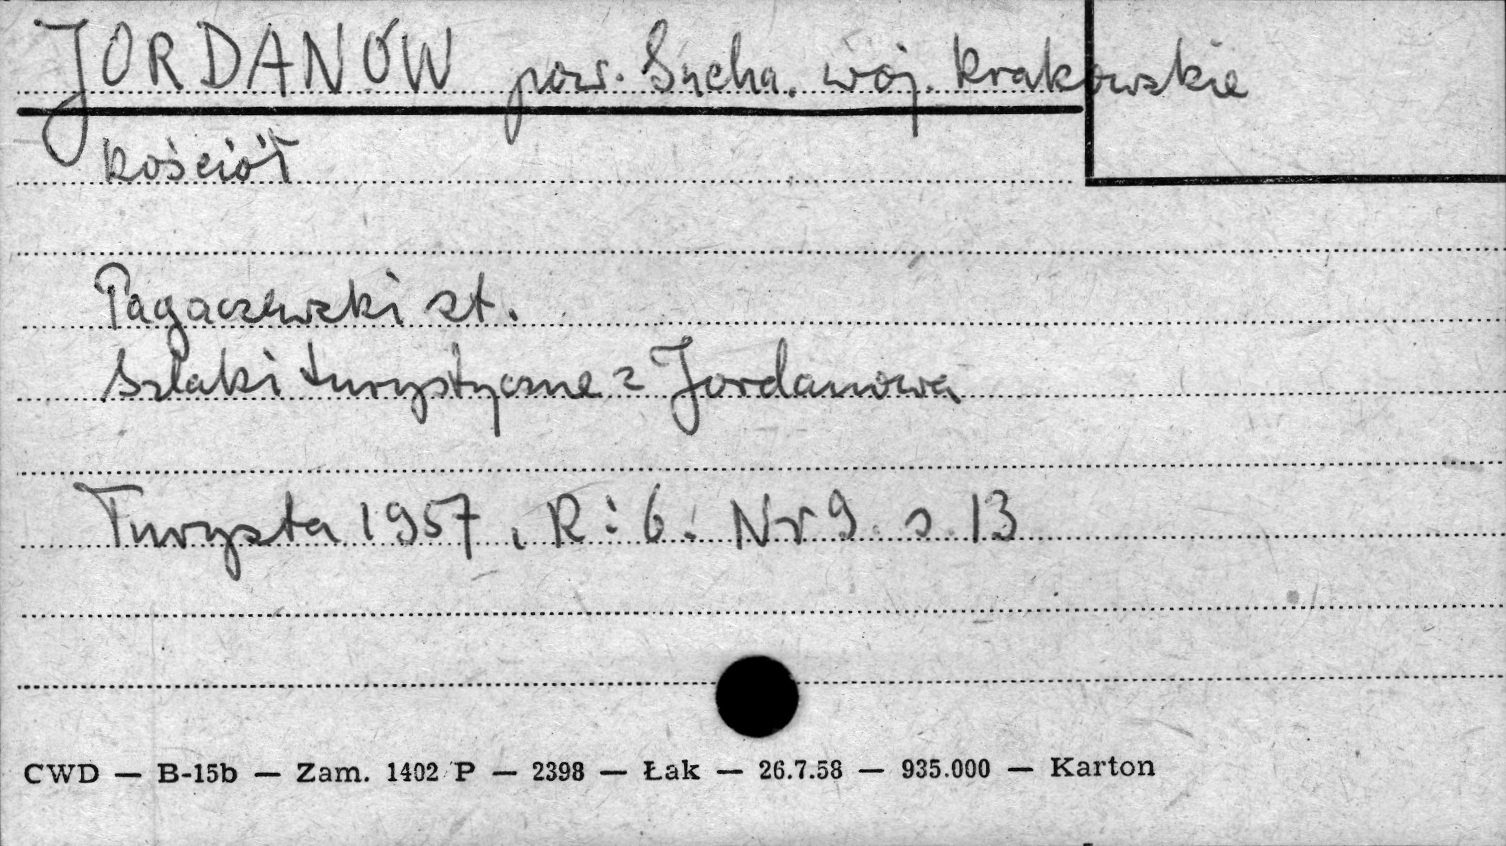 JORDANÓW pow. Sucha. woj. krakowskie
kościół
Pagaczewski St.
Szlaki turystyczne z Jordanowa
Turysta 1957, R: 6. Nr 9. s. 13
CWD — B-15b — Zam. 1402 P — 2398 — Łak — 26.7.58 — 935.000 — Karton